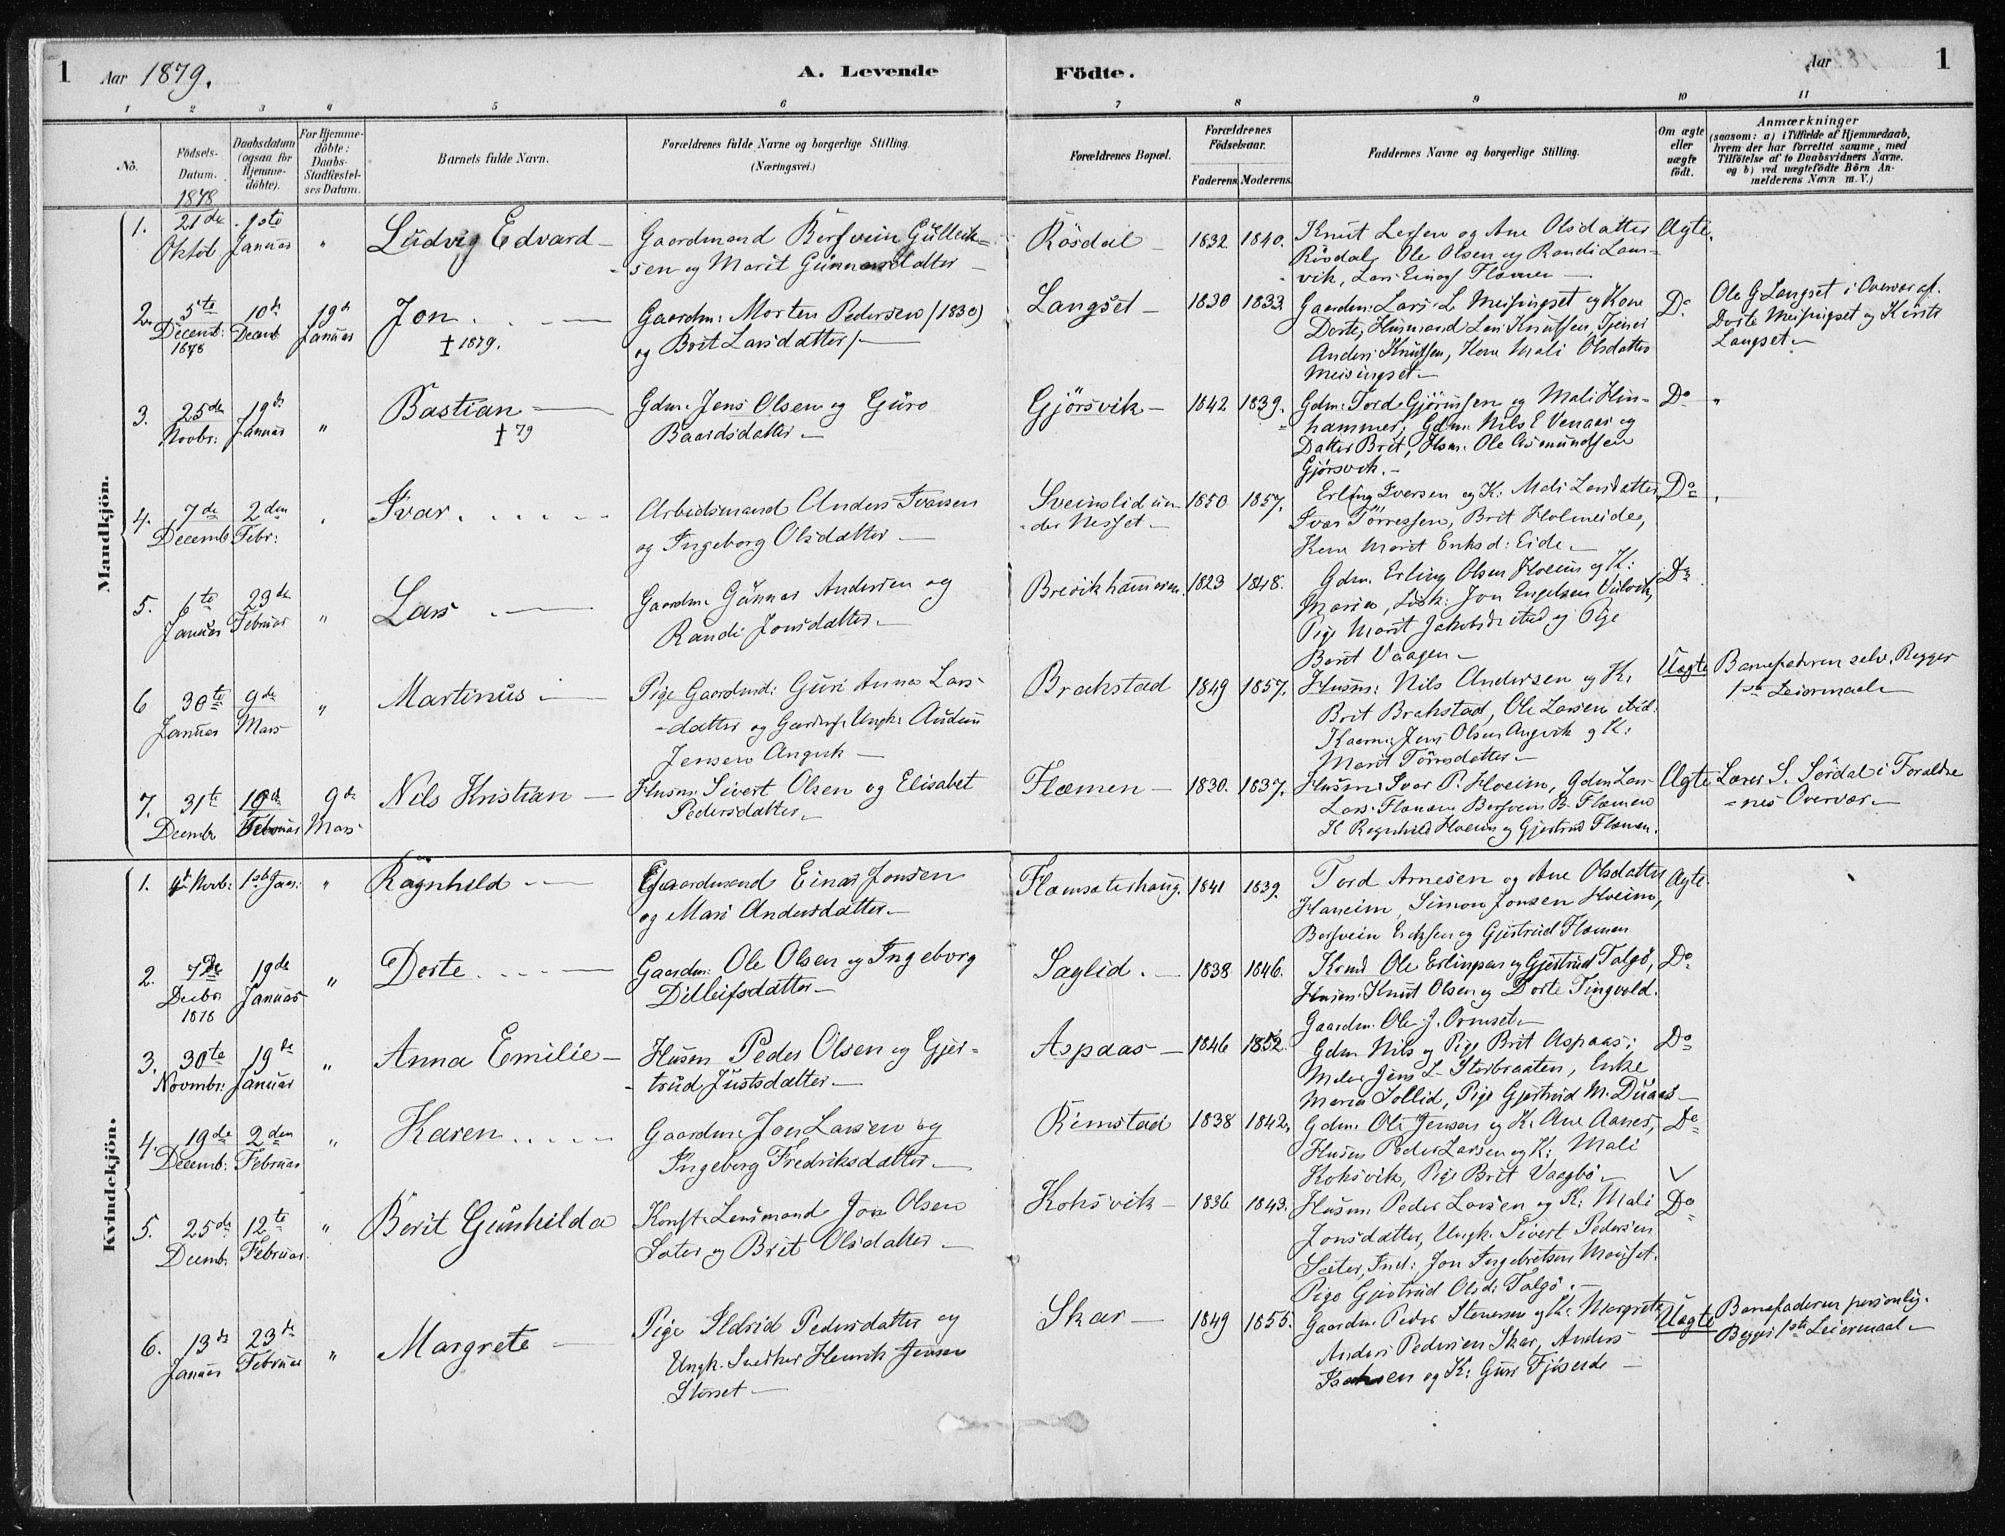 1 Aar 1879. A. Levende Fødte. Aar 1
1 2 3 4 5 6 7 8 9 10 11
Nö.
Födsels-
Datum.
Daabsdatum
(ogsaa for
Hjemme-
döbte).
For Hjemme-
döbte:
Daabs-
Stadfæstel-
ses Datum.
Barnets fulde Navn.
Forældrenes fulde Navne og borgerlige Stilling.
(Næringsvei.)
Forældrenes Bopæl.
Forældrenes
Födselsaar.
Faderens. Moderens.
Faddernes Navne og borgerlige Stilling.
Om ægte
eller
uægte
født.
Anmærkninger
(saasom: a) i Tilfælde af Hjemmedaab,
hvem der har forrettet samme, med
Tilföielse af to Daabsvidners Navne.
og b) ved uægtefødte Börn An-
melderens Navn m. V.)
Mandkjön.
1878
1. 21de Oktob. 1ste Januar " Ludvig Edvard
Gaardmand Bersvein Gullik-
sen og Marit Gunnarsdatter
Rösdal 1832 1840.
Knut Larsen og Ane Olsdatter
Rösdal, Ole Olsen og Randi Lam-
vik, Lars Einars Flemmen
Ægte.
2. 5te Decemb: 1878 10de Decemb 19de Januar Jon
† 1879.
Gaardm: Morten Pedersen (1830)
og Brit Larsdatter
Langset 1830 1833.
Gaardm: Lars L. Meisingset og Kone
Dorte, Husmand Lars Knutsen, Tjener
Anders Knutsen, Kone Mali Olsdatter
Meisingset
Do
Ole G Langset i Overvær af.
Dorte Meisingset og Kirsti
Langset
3. 25de Novbr: 19de Januar " Bastian
† 79
Gdm: Jens Olsen og Guro
Baardsdatter
Gjörsvik 1842 1839.
Gdm: Tord Gjörussen og Mali Hin-
hammer, Gdm: Nils E Venaas og
Datter Brit, Hsm. Ole Asmundsen
Gjörsvik.
Do "
4. 7de Decemb 2den Febr: Ivar
Arbeidsmand Anders Ivarsen
og Ingeborg Olsdatter
Sveinslid un-
der Nesset 1850 1857.
Erling Iversen og K: Mali Larsdatter
Ivar Törressen, Brit Holmeide,
Kone Marit Eriksd: Eide
Do
5. 6te Januar 23de Februar " Lars
Gaardm. Gunnar Andersen og
Randi Jonsdatter
Breivikhammeren 1823 1848.
Gdm. Erling Olsen Hoem og K:
Maria, Jon Engelsen
Pige Marit
Berit Vaagen
Do
6 30te Januar 9de Mars " Martinus
Pige Gaardmd: Guri Anna Lars-
datter og Ungk: Audun
Jensen Angvik
Brakstad 1849 1857.
Husm: Nils Andersen og K:
Brit Brakstad, Ole Larsen ibid.
Jens Olsen Angvik og K:
Marit Törresdatter
Uægte
Barnefaderen selv. Begges
1ste Leiermaal
7. 31te Decemb 10de Februar 9de Mars Nils Kristian
Husm: Sivert Olsen og Elisabet
Pedersdatter
Flemmen 1830. 1837.
Husm: Ivar P. Hoeim, Gdm Lars
Lars. Flemmen Bersvein B. Flemmen
K. Ragnhild Hoeim og Gjertrud Flemmen.
Ægte
Lærer S. Sördal i Foreldre-
nes Overvær.
Kvindekjön.
1. 4de Novb: 1ste Jan: " Ragnhild
Gaardmand Einar Jonsen
og Mari Andersdatter
Flemsæterhaug. 1841 1839.
Tord Arnesen og Ane Olsdatter
Haneim, Simon Jonsen Hoeim,
Bersvein Eriksen og Gjertrud Flemmen
Ægte.
2. 7de Decbr 1878 19de Januar " Dorte
Gaardm: Ole Olsen og Ingeborg
Dilleifsdatter
Saglid. 1838 1846.
Ole Erlingsen og Gjertrud Talgö,
Husm: Knut Olsen og Dorte Tingvold.
Gaardm. Ole J. Ormset
Do
3. 30te Novmbr: 19de Januar " Anna Emilie
Husm Peder Olsen og Gjer-
trud Justsdatter
Aspaas 1846 1852.
Gdm. Nils og Pige Brit Aspaas:
Maler Jens L. Storbraaten, Enke
Maria Sollid, Pige Gjertrud M. Duaas
Do
4. 19de Decemb: 2den Februar " Karen
Gaardm: Jon Larsen og
Ingeborg Fredriksdatter
Rimstad 1838 1842.
Gdm. Ole Jensen og K. Ane Aanes,
Husm Peder Larsen og K: Mali
Koksvik, Pige Brit Vaagbö
Do
5. 25de Decemb 12te Februar " Berit Gunhilda
Konst. Lensmand Jon Olsen
Sæter og Brit Olsdatter
Koksvik 1836 1843.
Husm: Peder Larsen og K: Mali
Jonsdatter, Ungk. Sivert Pedersen
Sæter, Ind: Jon Ingebretsen
Pige Gjertrud Olsd: Talgö.
Do
6. 13de Januar 23de Februar " Margrete
Pige Ildrid Pedersdatter og
Ungk. Snedker Henrik Jensen
Storset
Skar 1849 1855.
Gaardm. Peder Stenersen og K: Margrete
Anders Pedersen Skar, Anders
Isaksen og K: Guri Fjöseide
Uægte
Barnefaderen personlig.
Begges 1ste Leiermaal